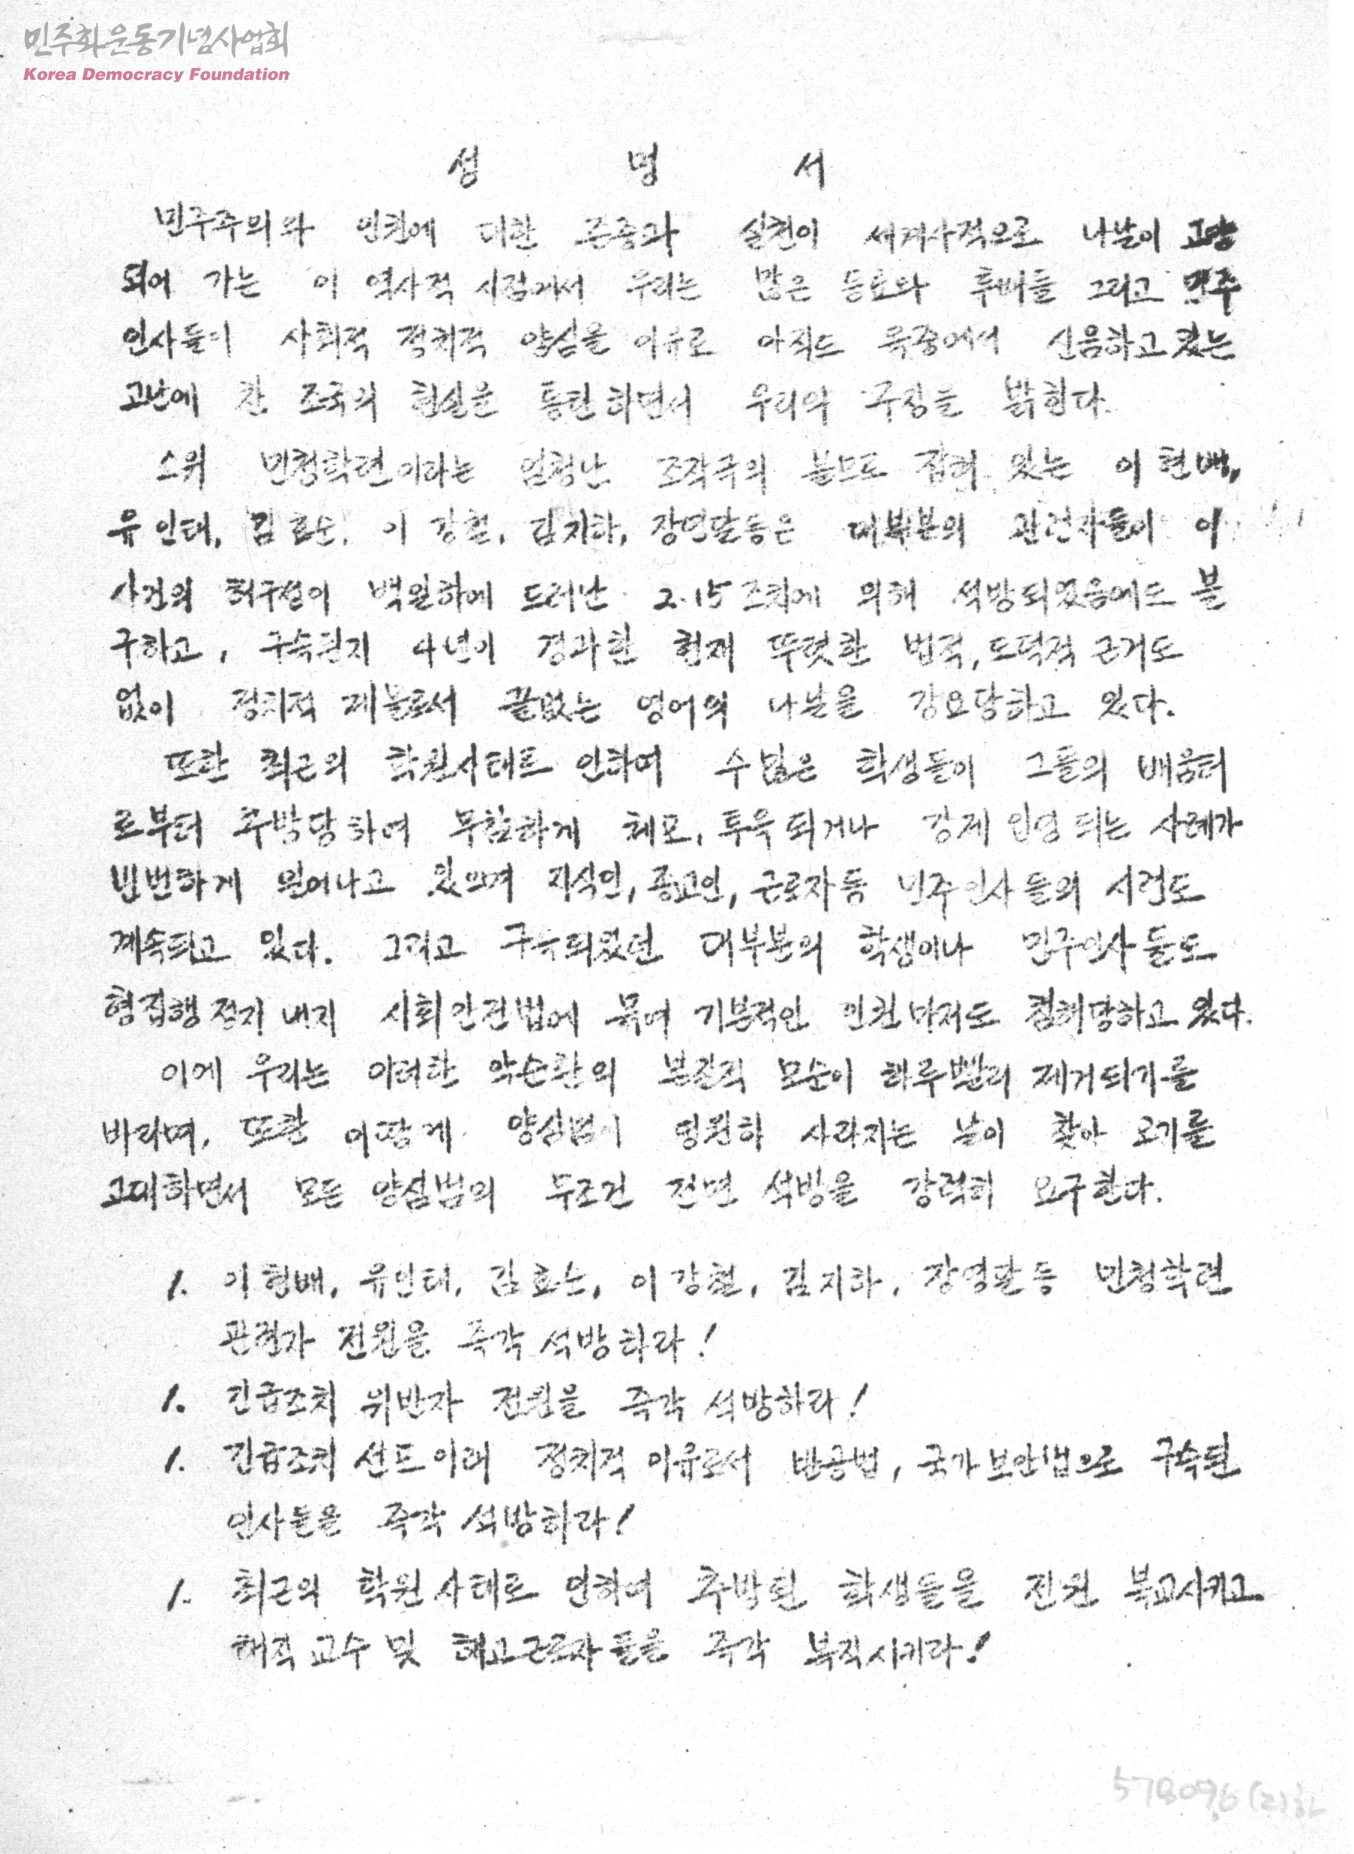 민주화운동기념사업회
Korea Democracy Foundation
성 명 서
민주주의와 인권에 대한 존중과 실천이 세계사적으로 나날이 고양
되어 가는 이 역사적 시점에서 우리는 많은 동료와 후배들 그리고 민주
인사들이 사회적 정치적 양심을 이유로 아직도 옥중에서 신음하고 있는
고난에 찬 조국의 현실을 통탄하면서 우리의 주장을 밝힌다.
소위 민청학련이라는 엄청난 조작극의 볼모로 잡혀 있는 이현배,
유인태, 김효순, 이강철, 김지하, 장영달등은 대부분의 관련자들이 이
사건의 허구성이 백일하에 드러난 2.15조치에 의해 석방되었음에도 불
구하고, 구속된지 4년이 경과한 현재 뚜렷한 법적, 도덕적 근거도
없이 정치적 제물로서 끝없는 영어의 나날을 강요당하고 있다.
또한 최근의 학원사태로 인하여 수많은 학생들이 그들의 배움터
로부터 추방당하여 무참하게 체포, 투옥되거나 강제 입영되는 사례가
빈번하게 일어나고 있으며 지식인, 종교인, 근로자등 민주인사들의 시련도
계속되고 있다. 그리고 구속되었던 대부분의 학생이나 민주인사들도
형집행정지 내지 사회안전법에 묶여 기본적인 인권마저도 침해당하고 있다.
이에 우리는 이러한 악순환의 본질적 모순이 하루빨리 제거되기를
바라며, 또한 이땅에 양심범이 영원히 사라지는 날이 찾아 오기를
고대하면서 모든 양심범의 무조건 전면 석방을 강력히 요구한다.
1. 이현배, 유인태, 김효순, 이강철, 김지하, 장영달등 민청학련
관련자 전원을 즉각 석방하라!
1. 긴급조치 위반자 전원을 즉각 석방하라!
1. 긴급조치 선포이래 정치적 이유로서 반공법, 국가보안법으로 구속된
인사들을 즉각 석방하라!
1. 최근의 학원사태로 인하여 추방된 학생들을 전원 복교시키고
해직교수 및 해고근로자들을 즉각 복직시키라!
578096(2)하